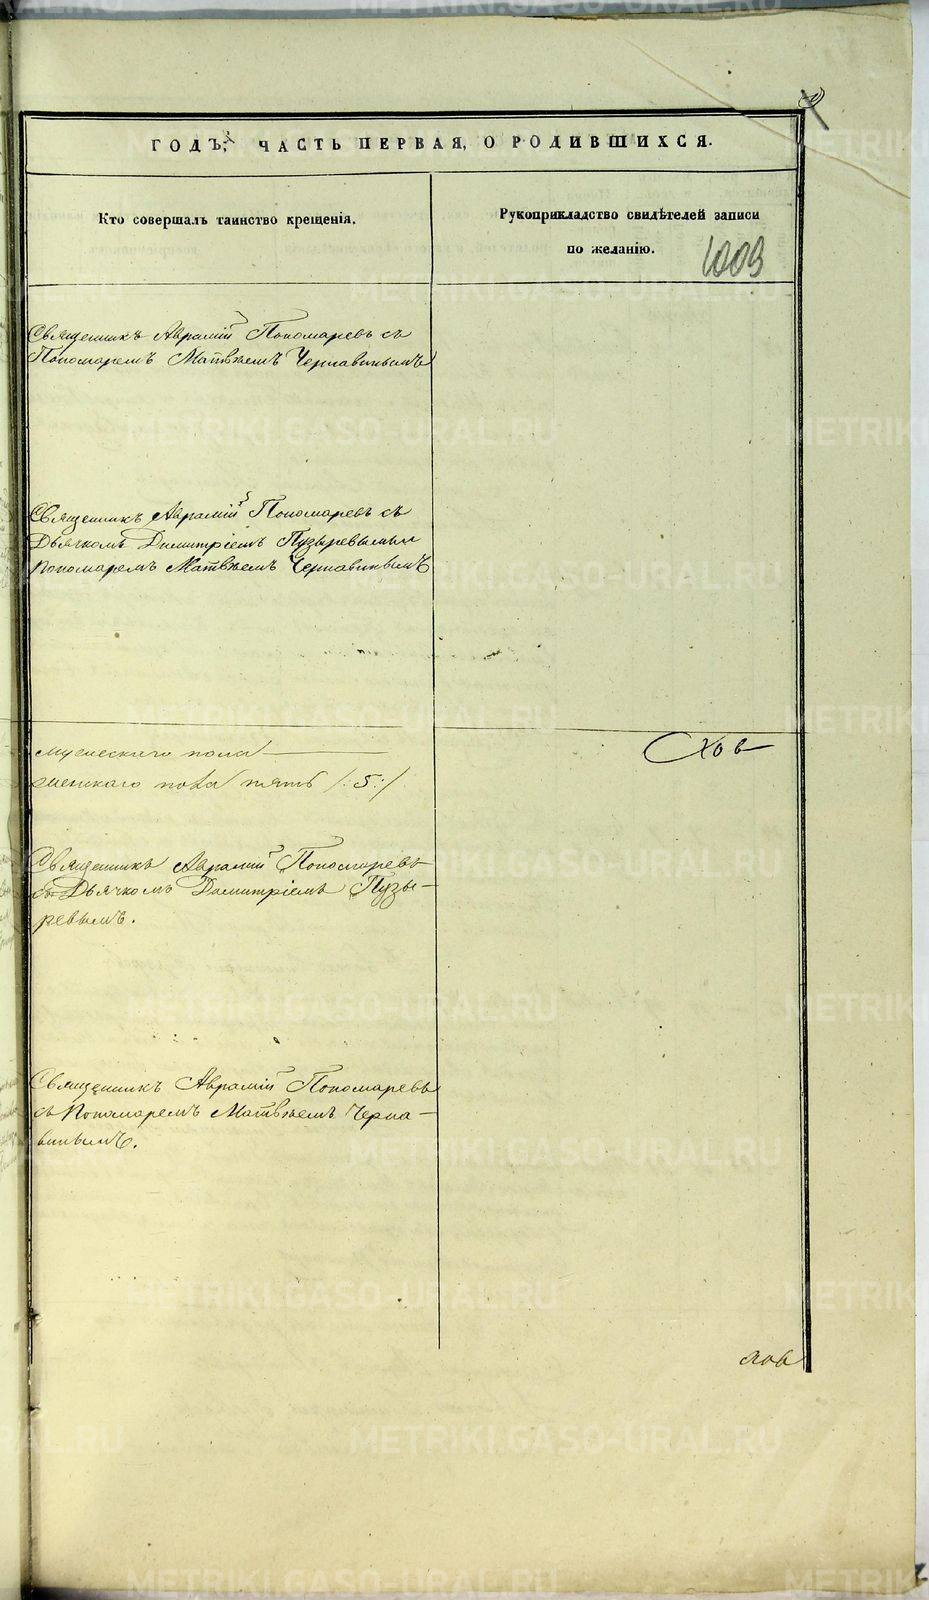 ГОДЪ, ЧАСТЬ ПЕРВАЯ, О РОДИВШИХСЯ.
Кто совершалъ таинство крещенія.
Рукоприкладство свидѣтелей записи
по желанію.
1009
Священникъ Аврамій Пономаревъ съ
Пономаремъ Матвѣемъ Чернавинымъ
Священникъ Аврамій Пономаревъ съ
Дьячкомъ Димитріемъ Пузыревымъ и
Пономаремъ Матвѣемъ Чернавинымъ
мужескаго пола
женскаго пола пять /:5:/
Священникъ Аврамій Пономаревъ
съ Дьячкомъ Димитріемъ Пузы-
ревымъ.
Священникъ Аврамій Пономаревъ
съ Пономаремъ Матвѣемъ Черна-
винымъ.
METRIKI.GASO-URAL.RU